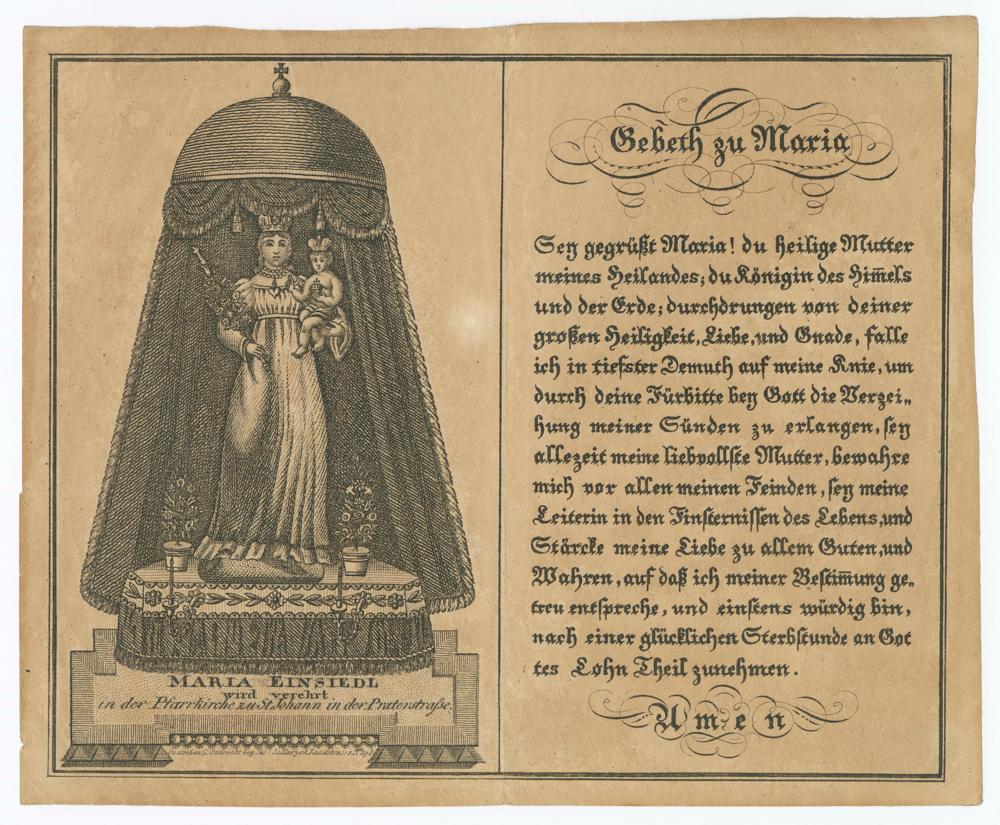 MARIA EINSIEDL
wird verehrt
in der Pfarrkirche zu St Johann in der Praterstraße.
Gebeth zu Maria
Sey gegrüßt Maria! du heilige Mutter
meines Heilandes; du Königin des Him̅els
und der Erde; durchdrungen von deiner
großen Heiligkeit, Liebe, und Gnade, falle
ich in tiefster Demuth auf meine Knie, um
durch deine Fürbitte bey Gott die Verzei„
hung meiner Sünden zu erlangen, sey
allezeit meine liebvollste Mutter, bewahre
mich vor allen meinen Feinden, sey meine
Leiterin in den Finsternissen des Lebens, und
Stärcke meine Liebe zu allem Guten, und
Wahren, auf daß ich meiner Bestim̅ung ge„
treu entspreche, und einstens würdig bin,
nach einer glücklichen Sterbstunde an Got
tes Lohn Theil zunehmen.
Amen